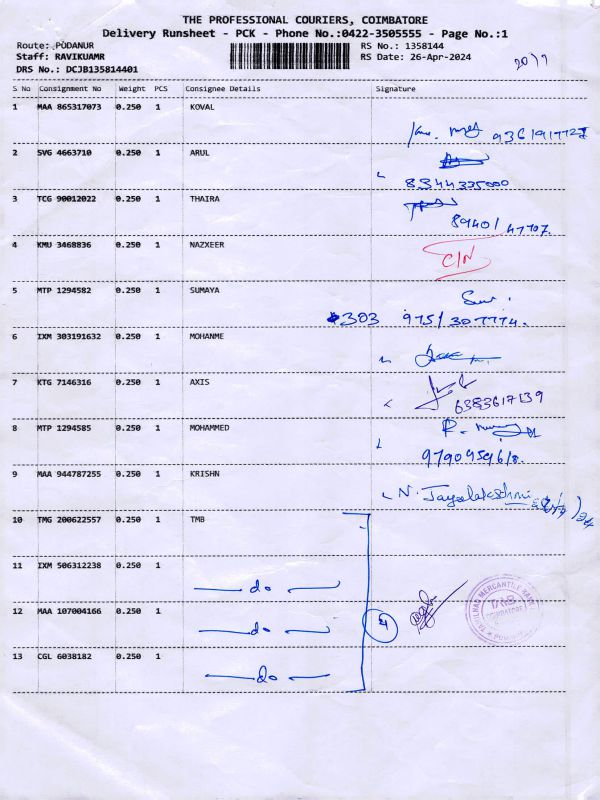 THE PROFESSIONAL COURIERS, COIMBATORE
Delivery Runsheet - PCK - Phone No.:0422-3505555 - Page No.:1
Route: PODANUR
RS No.: 1358144
Staff: RAVIKUAMR
RS Date: 26-Apr-2024
DRS No.: DCJB135814401
S No Consignment No Weight PCS Consignee Details Signature
1 MAA 865317073 0.250 1 KOVAL
2 SVG 4663710 0.250 1 ARUL
8344335000
3 TCG 90012022 0.250 1 THAIRA
89401 47707.
4 KMU 3468836 0.250 1 NAZXEER
C/N
5 MTP 1294582 0.250 1 SUMAYA
303 9751307774.
6 IXM 303191632 0.250 1 MOHANME
7 KTG 7146316 0.250 1 AXIS
6383617139
8 MTP 1294585 0.250 1 MOHAMMED
9 MAA 944787255 0.250 1 KRISHN
N. Jayalakshmi
10 TMG 200622557 0.250 1 TMB
11 IXM 506312238 0.250 1
do
12 MAA 107004166 0.250 1
do
4
13 CGL 6038182 0.250 1
do
TAMILNAD MERCANTILE BANK
TMB
COIMBATORE